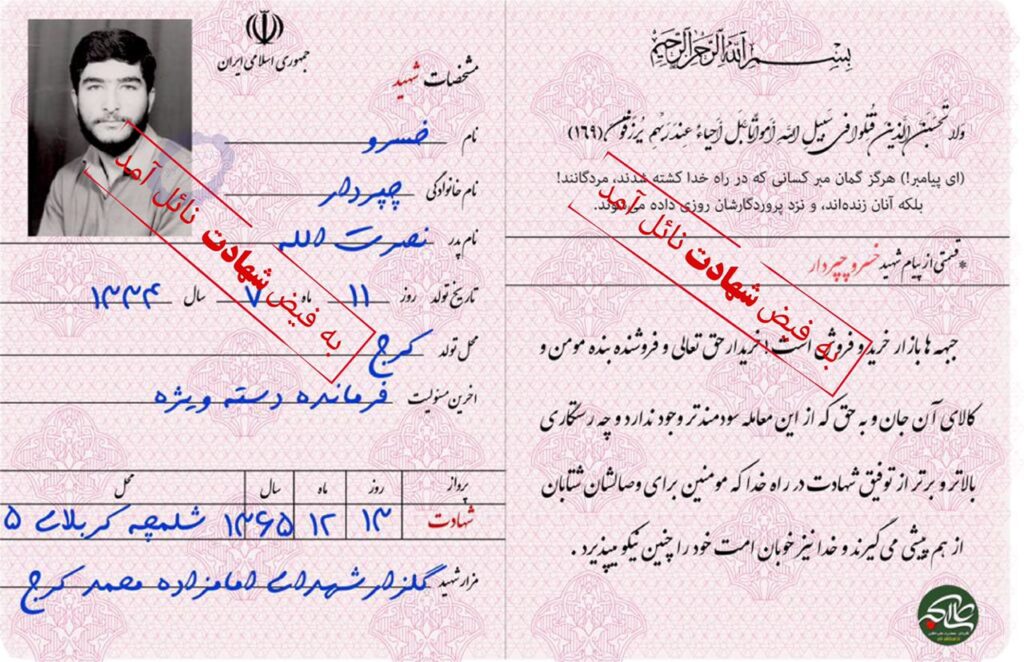 جمهوری اسلامی ایران
مشخصات شهید
نام خسرو
نام خانوادگی چپردار
نام پدر نصرت الله
تاریخ تولد روز ۱۱ ماه ۷ سال ۱۳۴۴
محل تولد کرج
آخرین مسئولیت فرمانده دسته ویژه
به فیض شهادت نائل آمد
پرواز روز ماه سال محل
شهادت ۱۳ ۱۲ ۱۳۶۵ شلمچه کربلای ۵
مزار شهید گلزار شهدای امامزاده محمد کرج
بسم الله الرحمن الرحیم
ولا تحسبن الذین قتلوا فی سبیل الله أمواتا بل أحیاء عند ربهم یرزقون (۱۶۹)
(ای پیامبر!) هرگز گمان مبر کسانی که در راه خدا کشته شدند، مردگانند!
بلکه آنان زنده‌اند، و نزد پروردگارشان روزی داده می‌شوند.
به فیض شهادت نائل آمد
*قسمتی از پیام شهید خسرو چپردار
جبهه ها بازار خرید و فروش است، خریدار حق تعالی و فروشنده بنده مومن و
کالای آن جان و به حق که از این معامله سودمندتر وجود ندارد و چه رستگاری
بالاتر و برتر از توفیق شهادت در راه خدا که مومنین برای وصالشان شتابان
از هم پیشی می گیرند و خدا نیز خوبان امت خود را چنین نیکو میپذیرد .